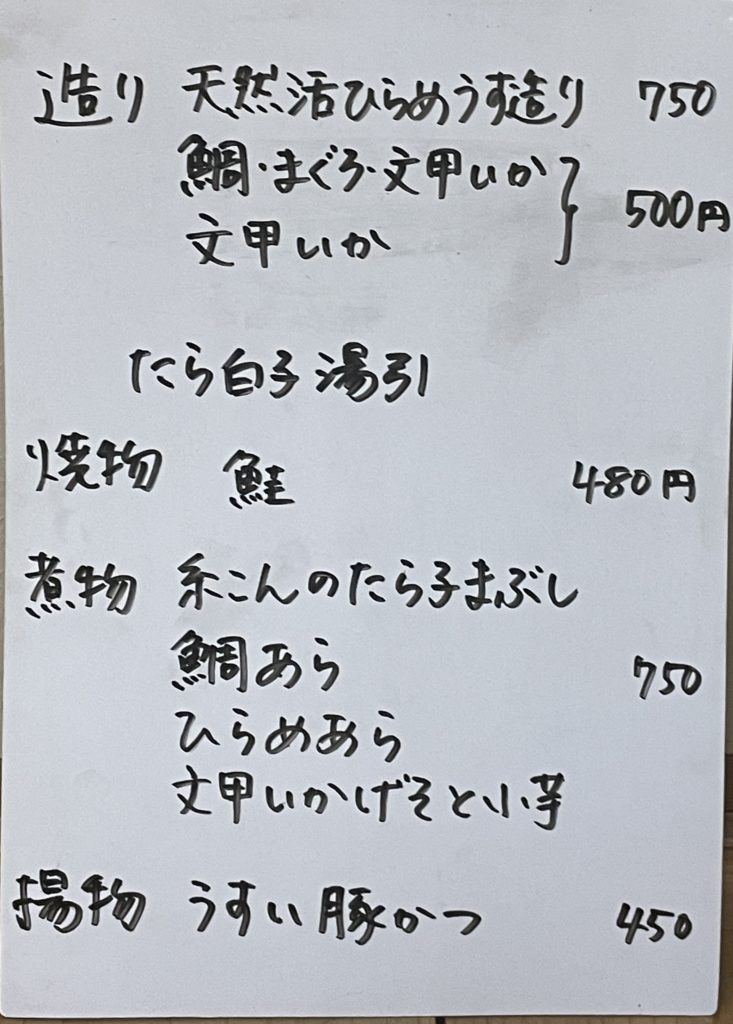 造り 天然活ひらめうす造り 750
鯛・まぐろ・文甲いか
文甲いか } 500円
たら白子湯引
焼物 鮭 480円
煮物 糸こんのたら子まぶし
鯛あら 750
ひらめあら
文甲いかげそと小芋
揚物 うすい豚かつ 450